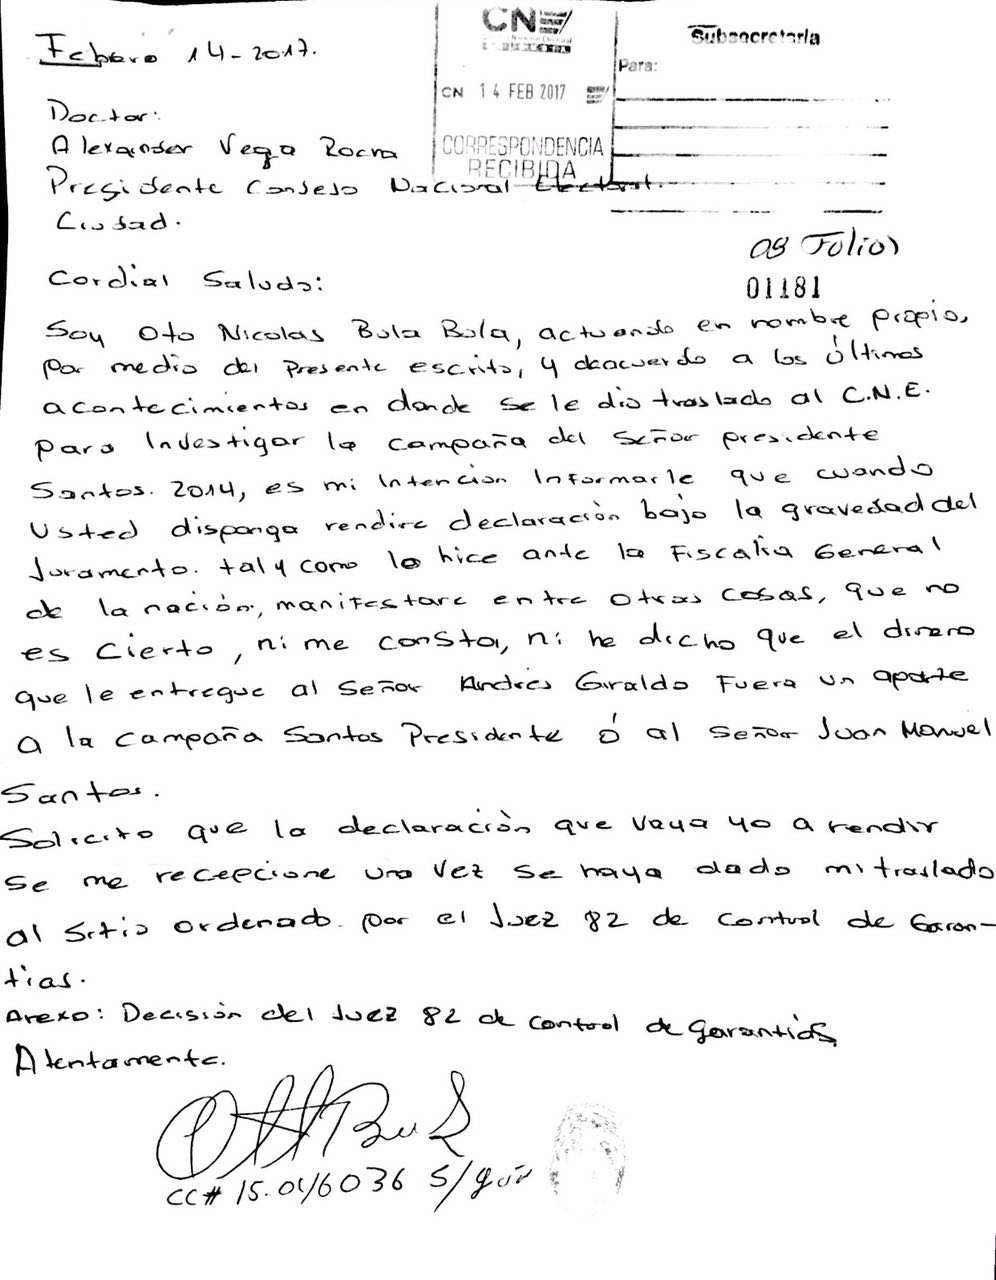 Febrero 14-2017.
CNE
Consejo Nacional Electoral
COLOMBIA
Subsecretaría
Para:
CN 14 FEB 2017
CORRESPONDENCIA
RECIBIDA
Doctor:
Alexander Vega Rocha
Presidente Consejo Nacional Electoral.
Ciudad.
08 Folios
01181
Cordial Saludo:
Soy Oto Nicolas Bula Bula, actuando en nombre propio,
por medio del Presente escrito, y deacuerdo a los últimos
acontecimientos en donde se le dio traslado al C.N.E.
para Investigar la campaña del Señor presidente
Santos. 2014, es mi Intención Informarle que cuando
Usted disponga rendire declaración bajo la gravedad del
Juramento. tal y como lo hice ante la Fiscalia General
de la nación, manifestare entre otras cosas, que no
es cierto, ni me consta, ni he dicho que el dinero
que le entregue al Señor Andrés Giraldo Fuera un aporte
a la campaña Santos Presidente ó al Señor Juan Manuel
Santos.
Solicito que la declaración que vaya yo a rendir
se me recepcione una vez se haya dado mi traslado
al sitio ordenado. por el Juez 82 de control de Garan-
tias.
Anexo: Decisión del Juez 82 de control de garantias
Atentamente.
CC# 15.046036 S/gún